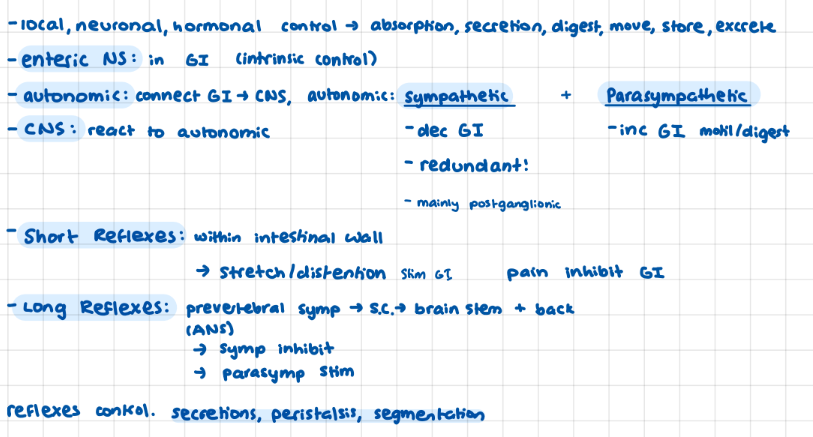 - local, neuronal, hormonal control → absorption, secretion, digest, move, store, excrete
- enteric NS: in GI (intrinsic control)
- autonomic: connect GI → CNS, autonomic: sympathetic + Parasympathetic
- CNS: react to autonomic - dec GI - inc GI motil/digest
- redundant!
- mainly postganglionic
- Short Reflexes: within intestinal wall
→ Stretch/distention stim GI pain inhibit GI
- Long Reflexes: prevertebral symp → S.C. → brain stem + back
(ANS)
→ symp inhibit
→ parasymp stim
reflexes control. secretions, peristalsis, segmentation